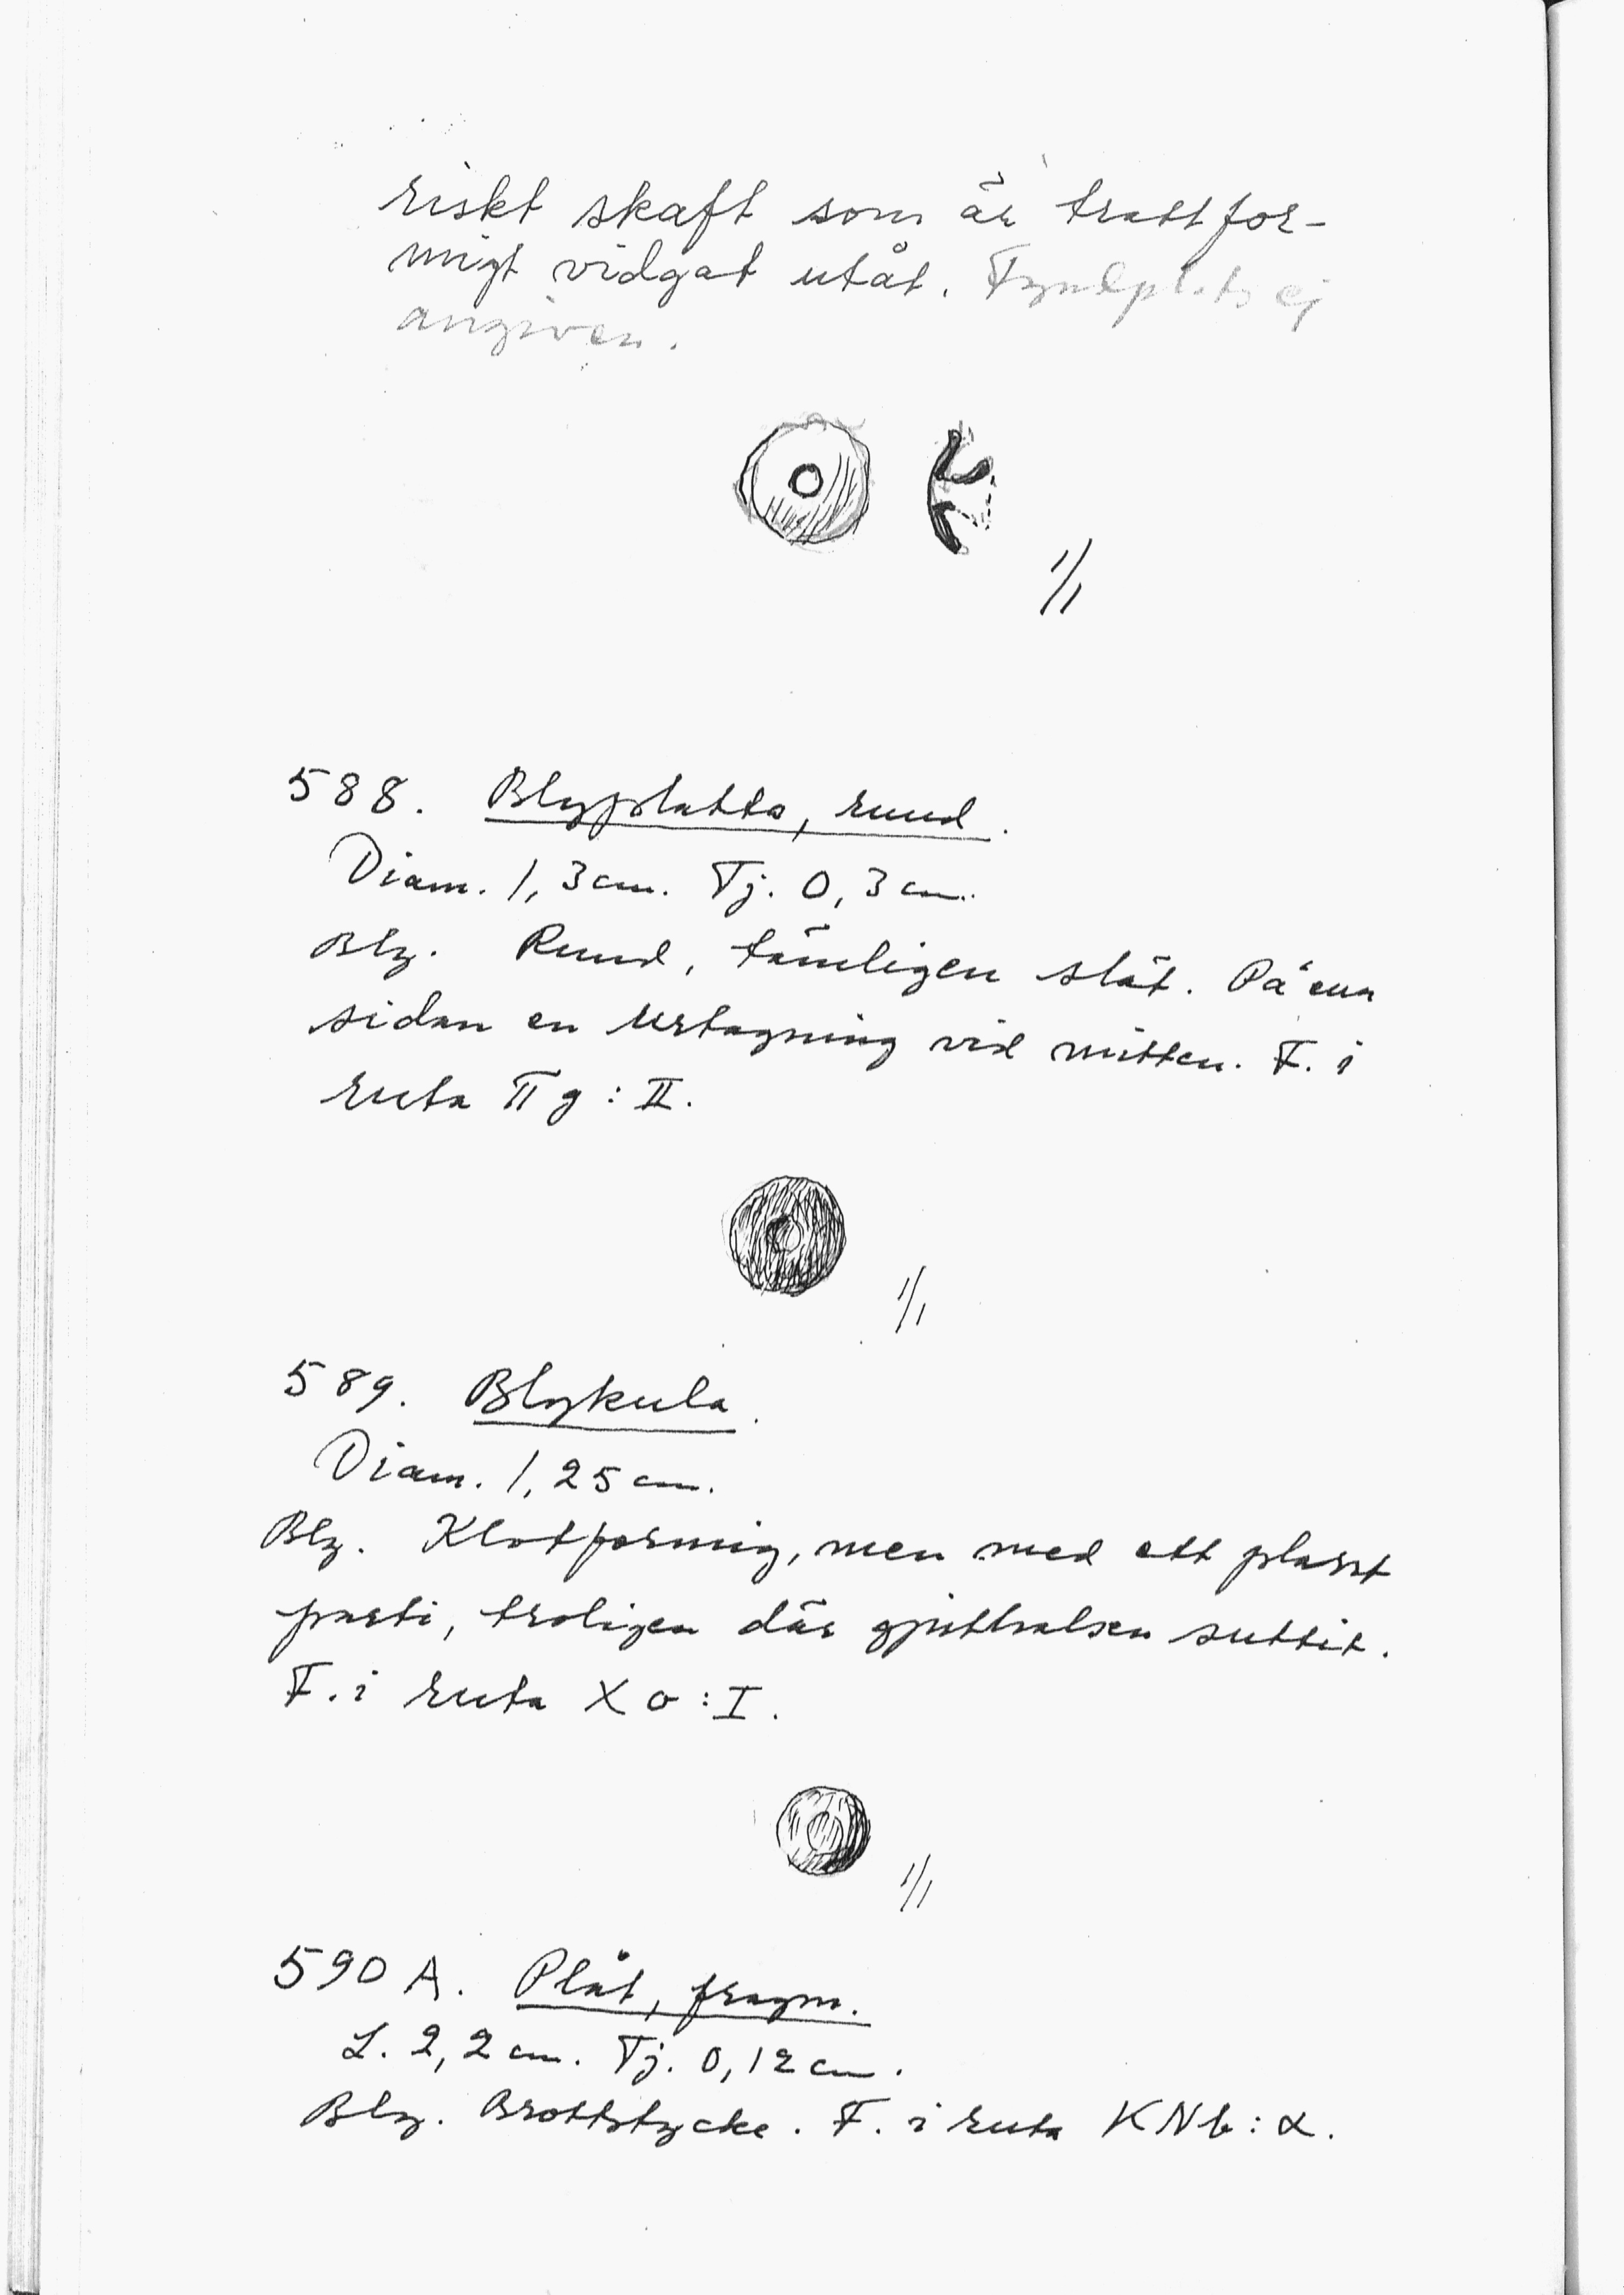 riskt skaft som är trattfor-
migt vidgat utåt. Fyndplats ej
angiven.
1/1
588. Blyplatta, rund.
Diam. 1,3 cm. Tj. 0,3 cm.
Bly. Rund, tämligen slät. På ena
sidan en urtagning vid mitten. F. i
ruta II g : II.
1/1
589. Blykula.
Diam. 1,25 cm.
Bly. Klotformig, men med ett plant
parti, troligen där gjuthalsen suttit.
F. i ruta X o : I.
1/1
590 A. Plåt, fragm.
L. 2,2 cm. Tj. 0,12 cm.
Bly. Brottstycke. F. i ruta KNb : α.